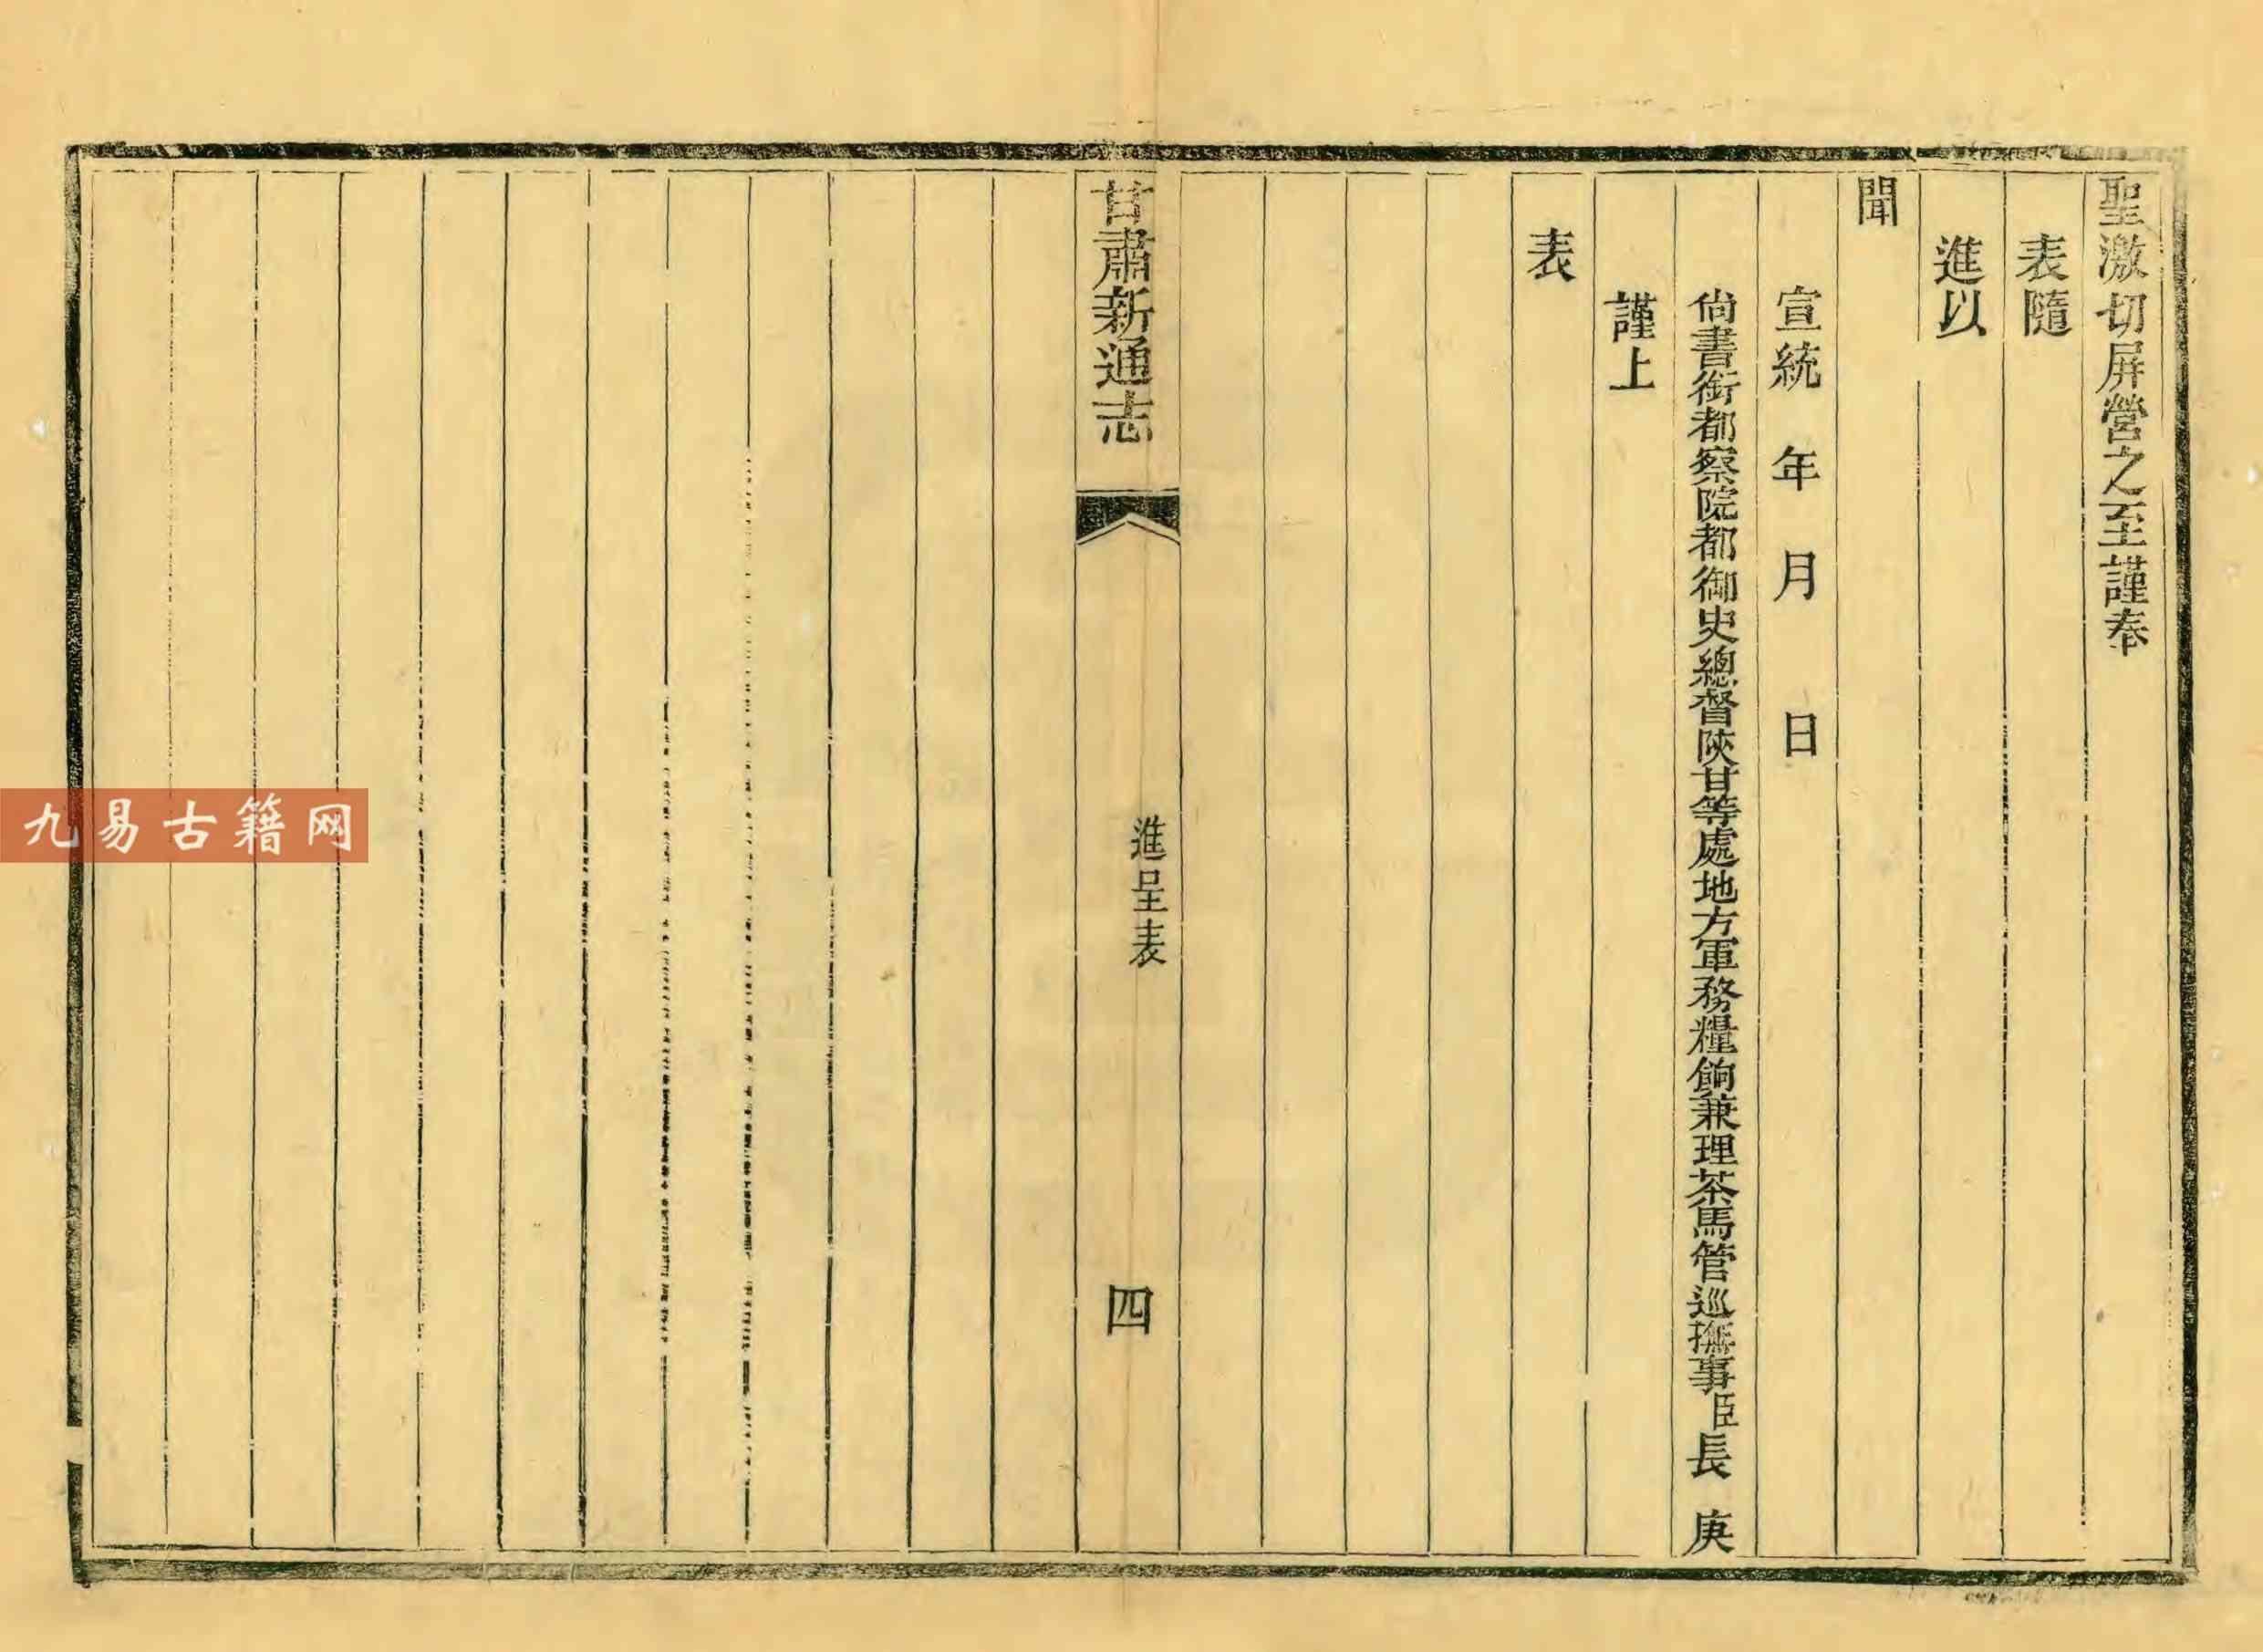 聖激切屏營之至謹奉
表隨
進以
聞
宣統　年　月　日
尙書銜都察院都御史總督陝甘等處地方軍務糧餉兼理茶馬管巡撫事臣長　庚
謹上
表
甘肅新通志　進呈表　四
九易古籍网